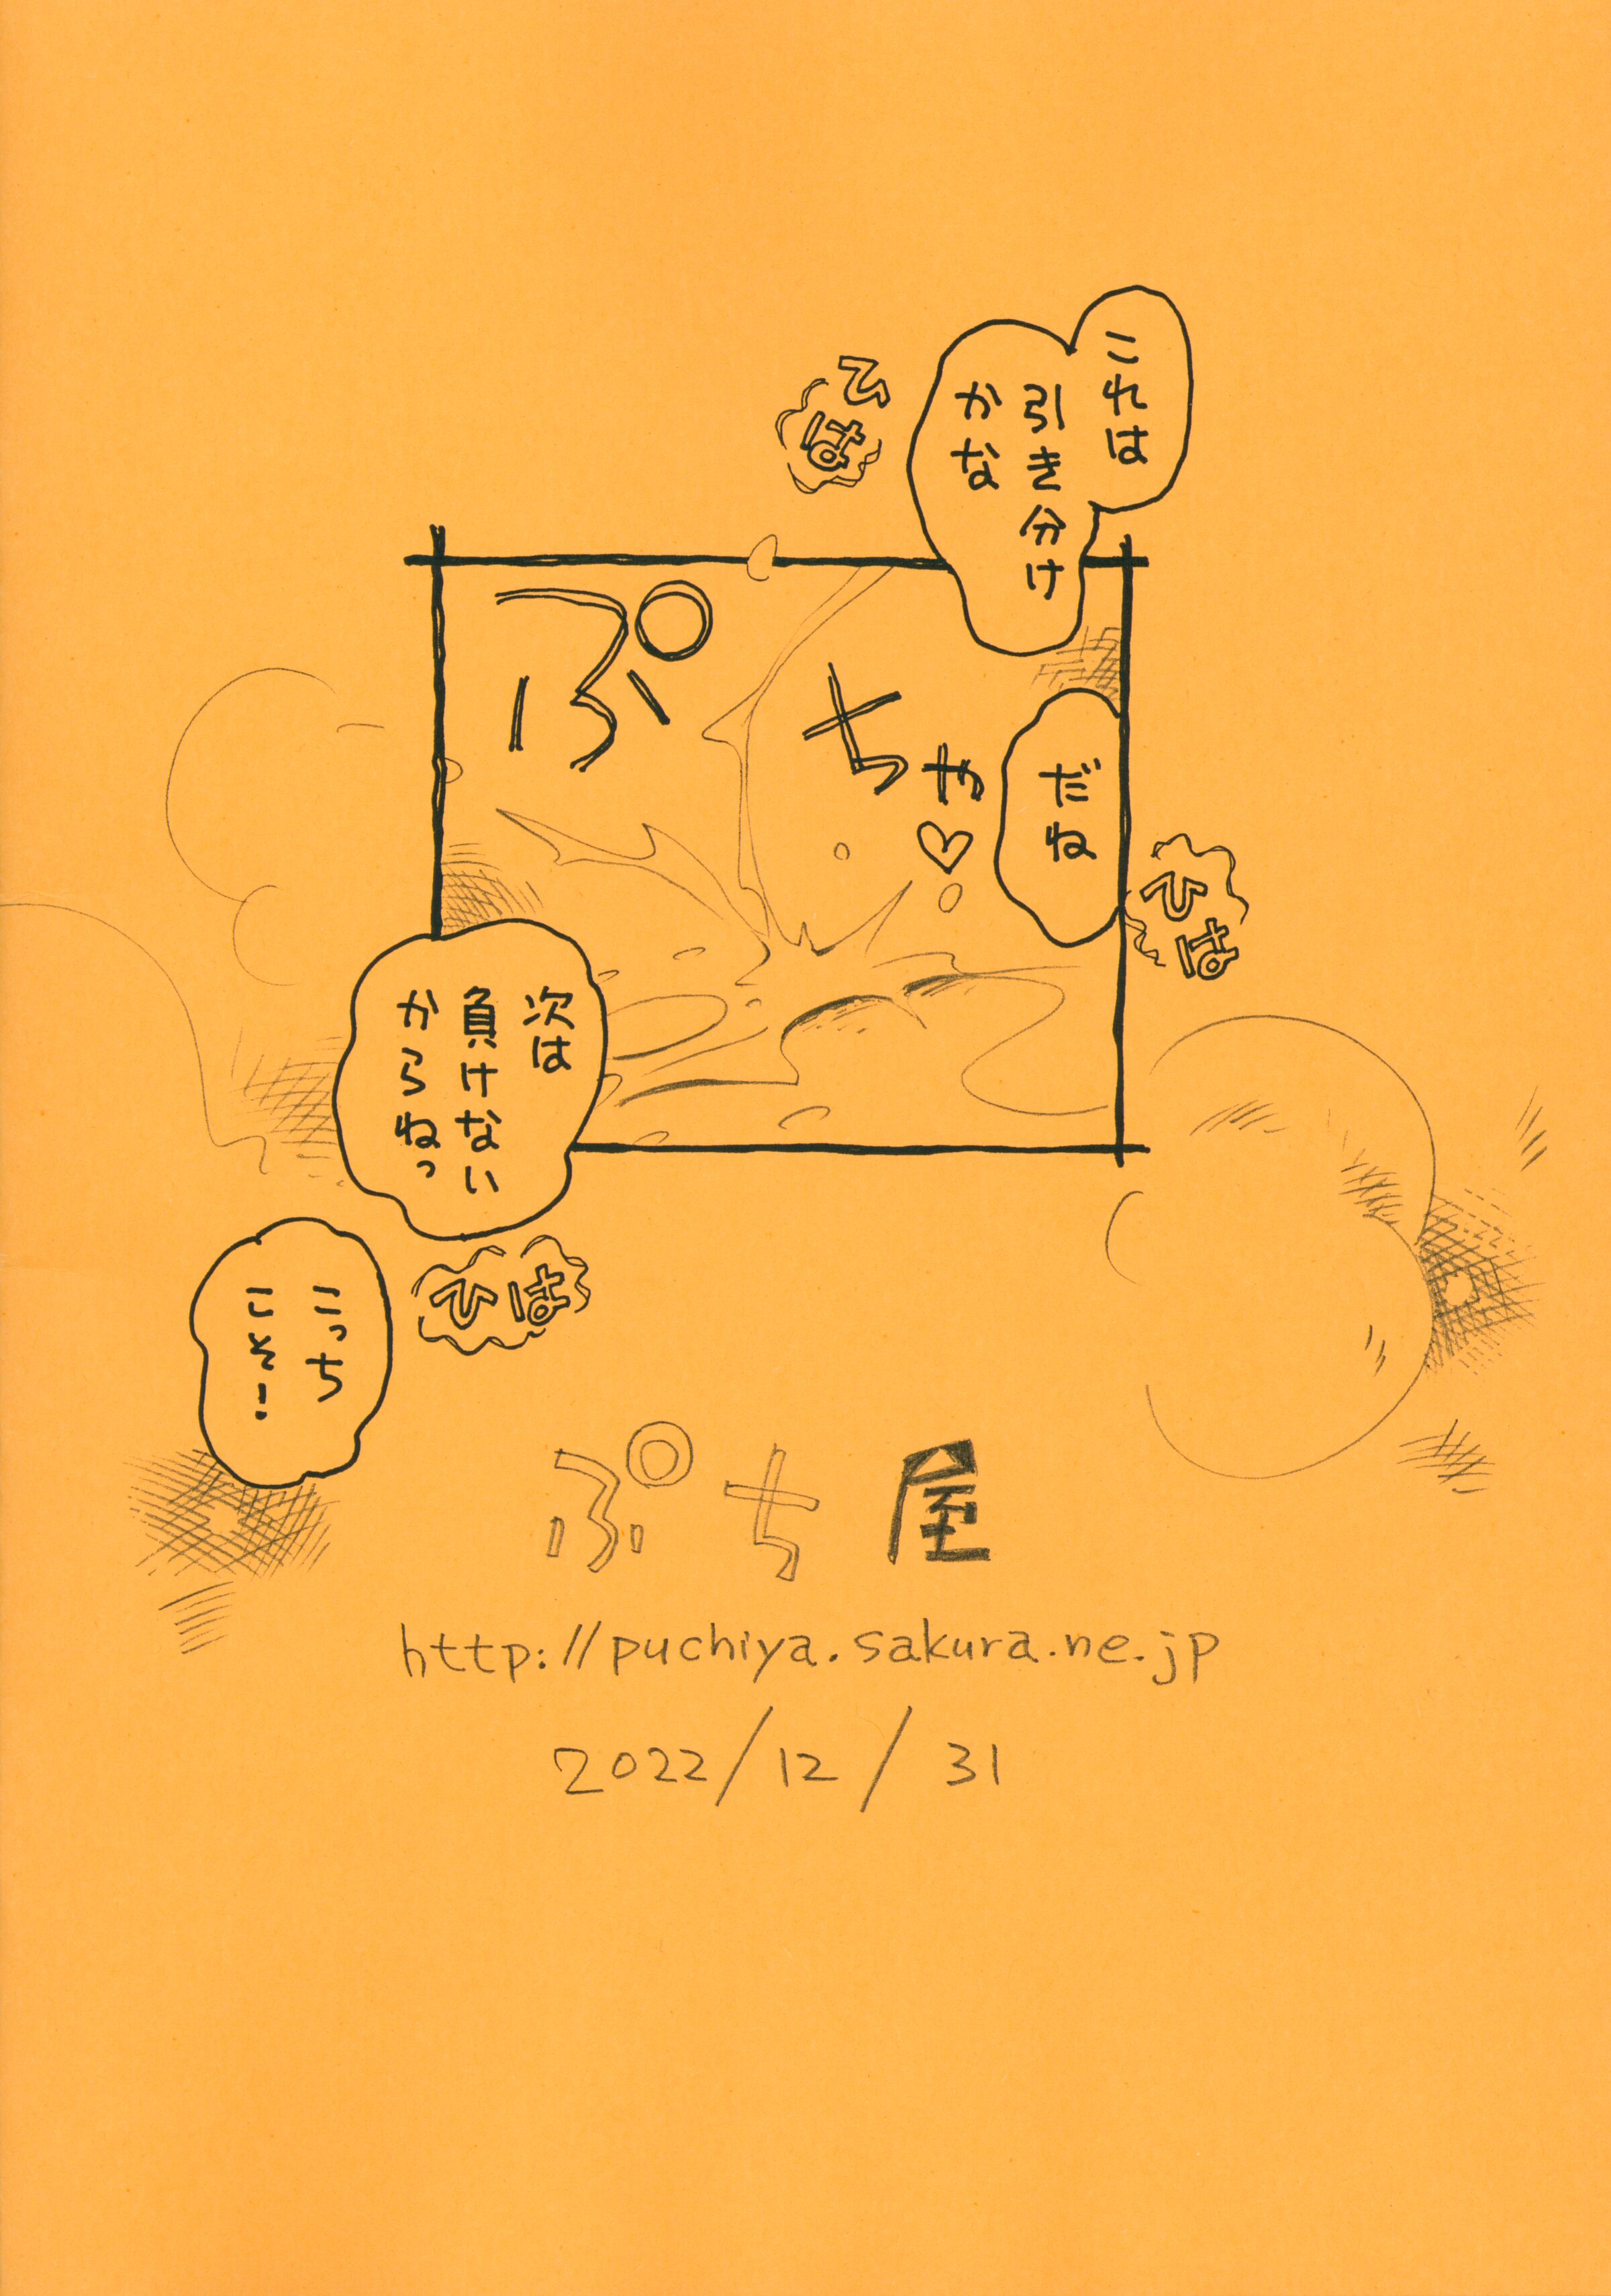 これは
引き分け
かな
ひは
ぷちゃ♡
だね
ひは
次は
負けない
からねっ
ひは
こっち
こそ!
ぷち屋
http://puchiya.sakura.ne.jp
2022/12/31